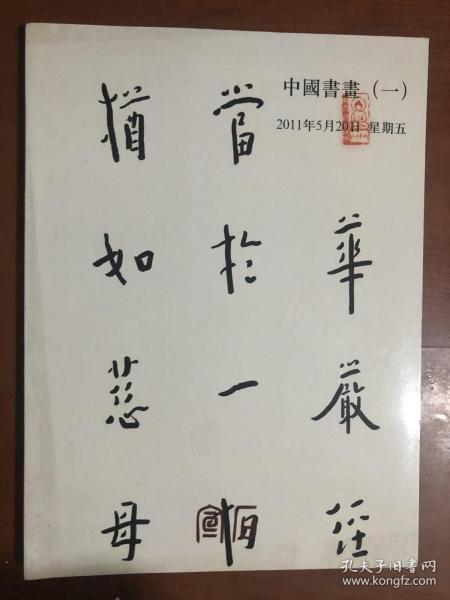 中國書畫（一）
2011年5月20日 星期五
華嚴經
當於一切
猶如慈母
孔夫子旧书网
www.kongfz.com